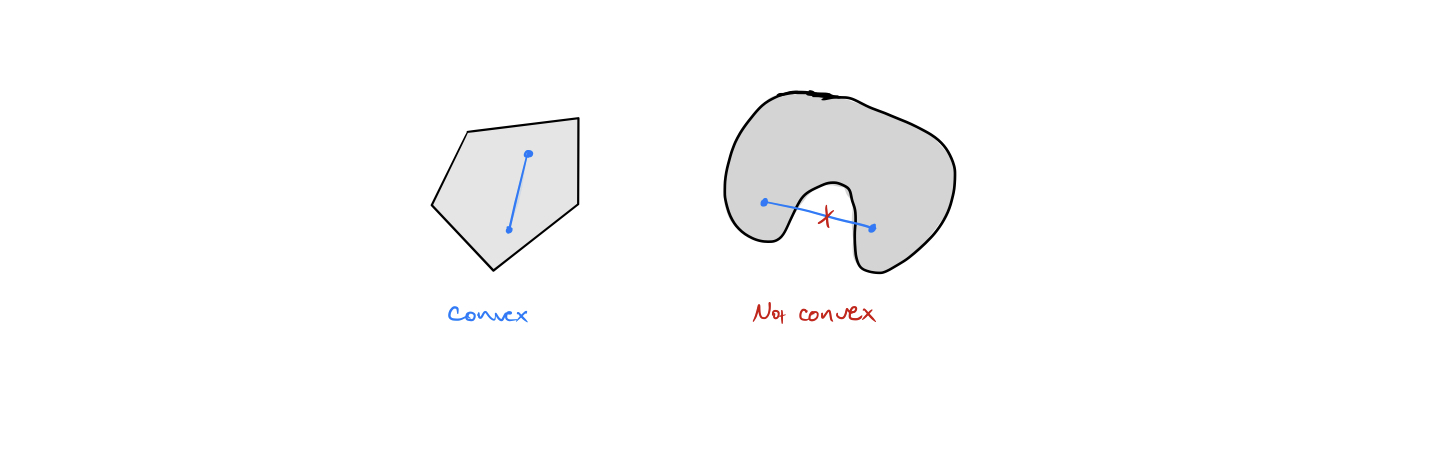 Convex
Not convex